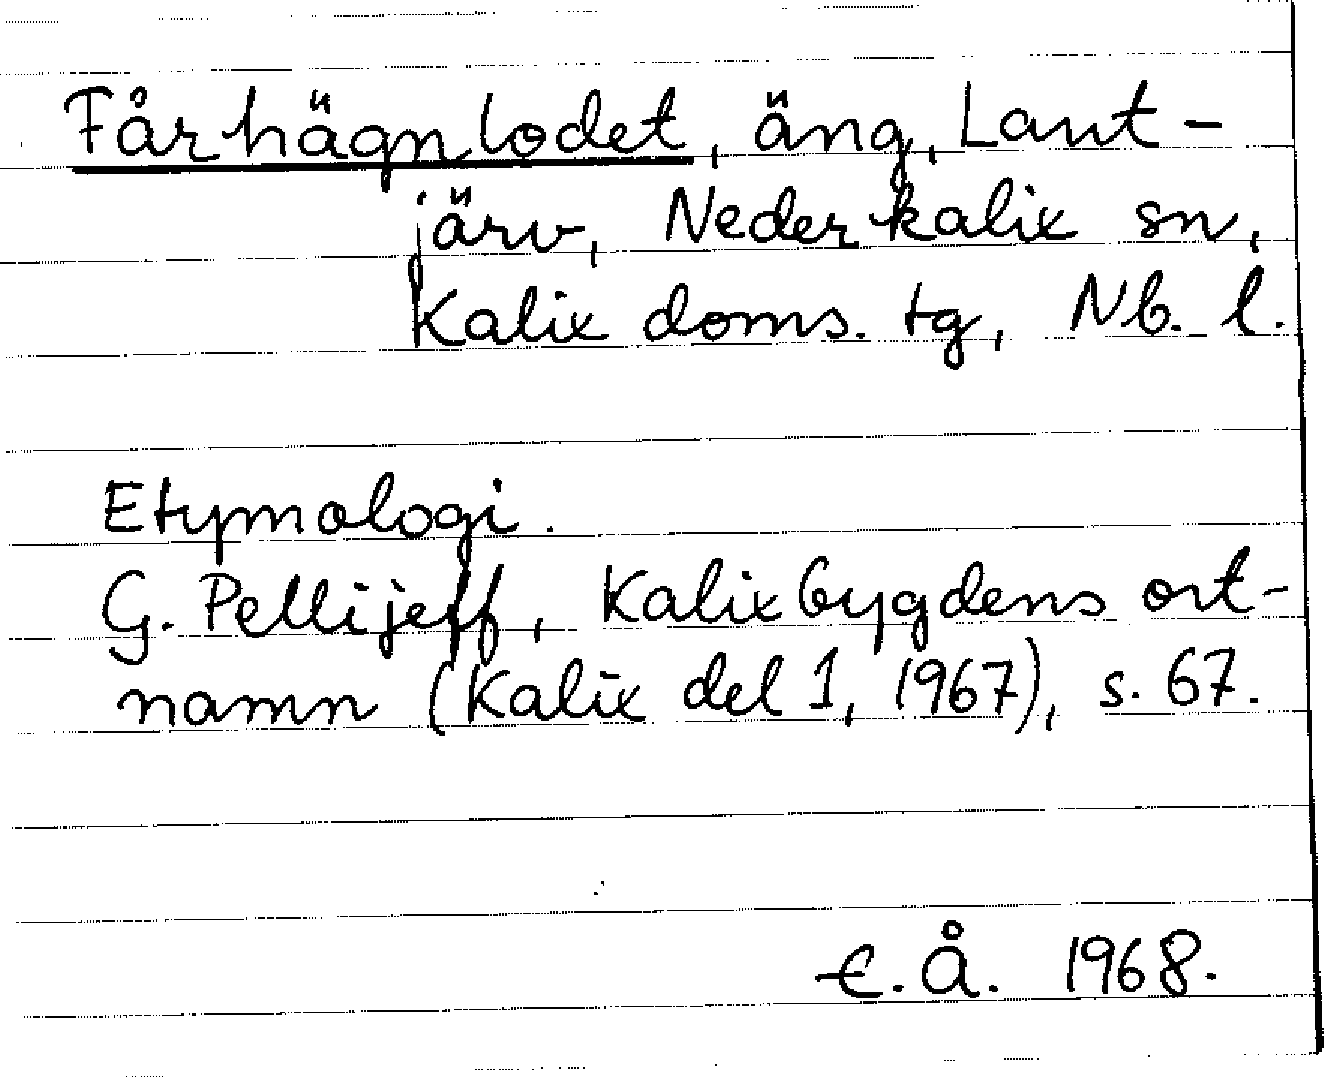 Fårhägnlodet, äng, Lant-
järv, Nederkalix sn,
Kalix doms. tg, Nb. l.
Etymologi.
G. Pellijeff, Kalixbygdens ort-
namn (Kalix del 1, 1967), s. 67.
E. Å. 1968.